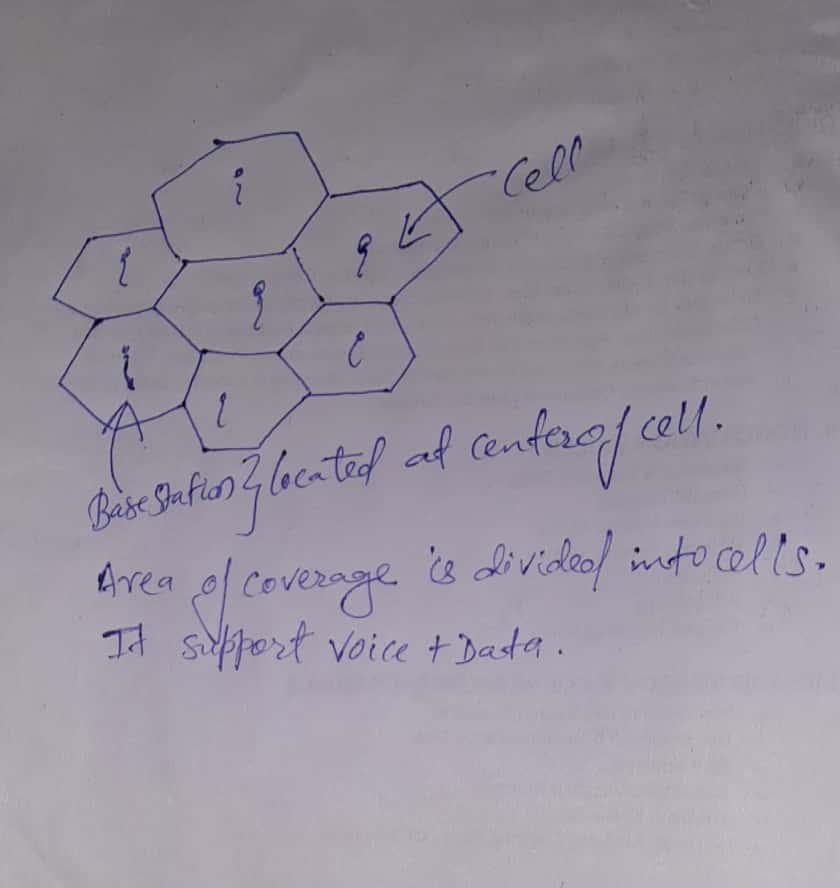 Cell
Base Station } located at center of cell.
Area of coverage is divided into cells.
It support Voice + Data.